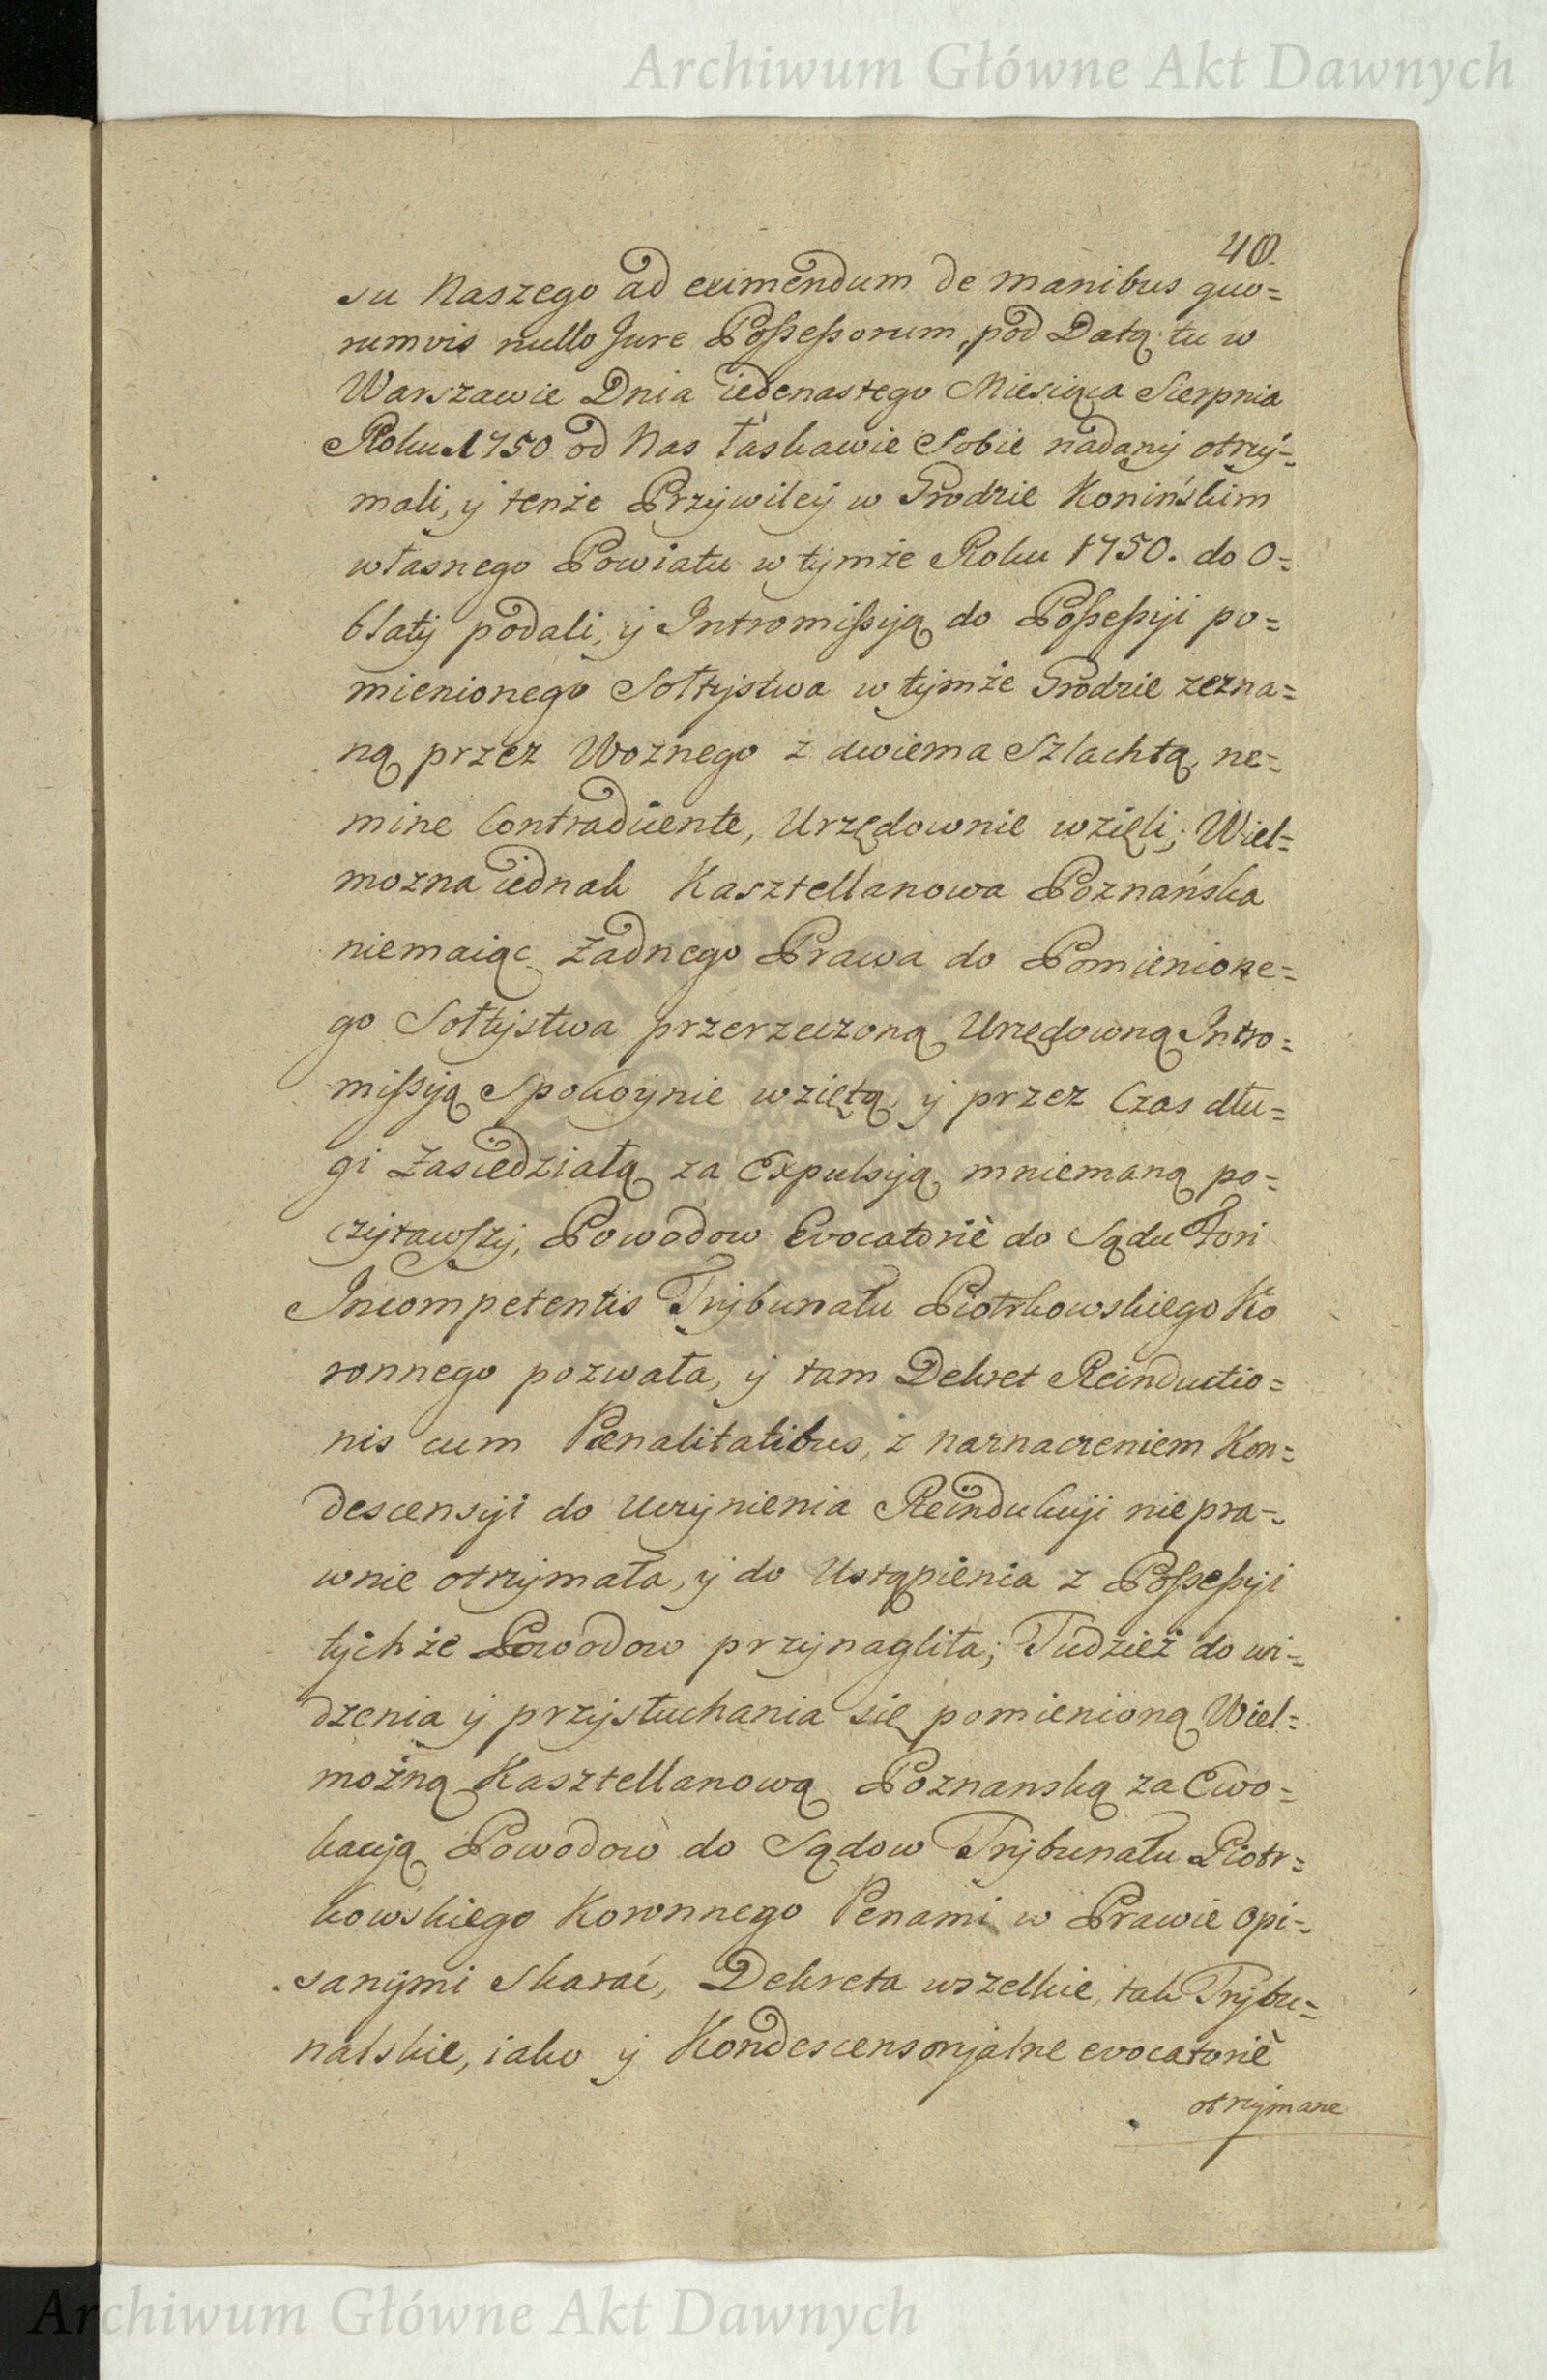 Archiwum Główne Akt Dawnych
40.
su Naszego ad eximendum de manibus quo=
rumvis nullo Jure Poßeßorum, pod Datą tu w
Warszawie Dnia iedenastego Miesiąca Sierpnia
Roku 1750 od Nas łaskawie Sobie nadany otrzy=
mali, y tenże Przywiley w Grodzie Konińskim
własnego Powiatu w tymże Roku 1750. do O=
blaty podali, y Intromißyią do Poßeßyi po=
mienionego Sołtystwa w tymże Grodzie zezna=
ną przez Woznego z dwiema Szlachtą, ne=
mine Contradicente, Urzędownie wzięli; Wiel=
mozna iednak Kasztellanowa Poznańska
niemaiąc Żadnego Prawa do Pomienione=
go Sołtystwa przerzeczoną Urzędowną Intro=
mißyią Spokoynie wziętą, y przez Czas dłu=
gi Zasiedziałą za Expulsyią mniemaną po=
czytawszy, Powodow Evocatorie do Sądu Fori
Incompetentis Trybunału Piotrkowskiego Ko
ronnego pozwała, y tam Dekret Reinductio=
nis cum Pænalitatibus, z naznaczeniem Kon=
descensyi do uczynienia Reindukcyi niepra=
wnie otrzymała, y do Ustąpienia z Poßeßyi
tychże Powodow przynagliła; Tudzież do wi=
dzenia y przysłuchania się pomienioną Wiel=
możną Kasztellanową Poznanską za Ewo=
kacyą Powodow do Sądow Trybunału Piotr=
kowskiego Koronnego Penami w Prawie opi=
sanymi Skarać, Dekreta wszelkie, tak Trybu=
nalskie, iako y Kondescensoryalne evocatoriè
otrzymane
Archiwum Główne Akt Dawnych